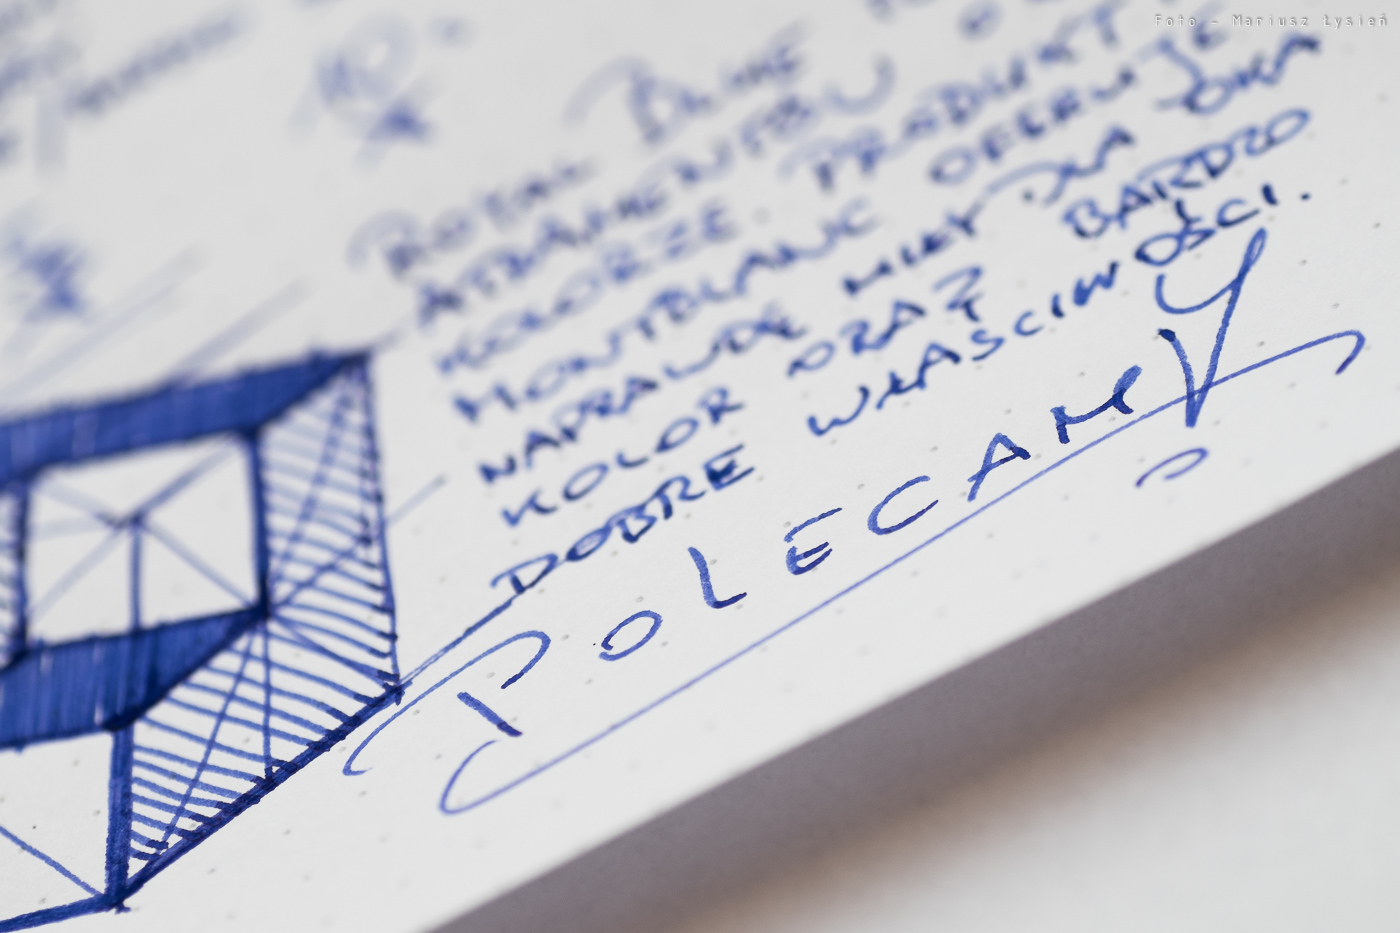 Foto - Mariusz Łysień
BLUE
ROYAL
ATRAMENTÓW
KOLORZE. PRODUKT
MONTBLANC OFERUJE
NAPRAWDĘ MIŁY DLA OKA
KOLOR ORAZ BARDZO
DOBRE WŁAŚCIWOŚCI.
POLECAMY